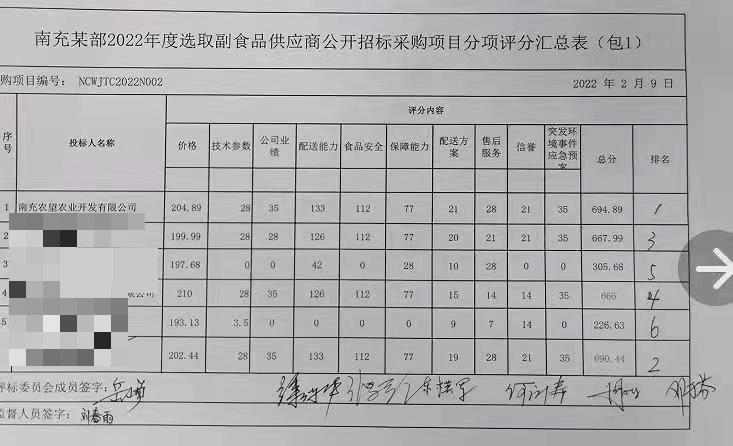 南充某部2022年度选取副食品供应商公开招标采购项目分项评分汇总表（包1）
购项目编号： NCWJTC2022N002 2022 年 2 月 9 日
序号 投标人名称 评分内容
价格 技术参数 公司业绩 配送能力 食品安全 保障能力 配送方案 售后服务 信誉 突发环境事件应急预案 总分 排名
1 南充农望农业开发有限公司 204.89 28 35 133 112 77 21 28 21 35 694.89 1
2 199.99 28 28 126 112 77 20 21 21 35 667.99 3
3 197.68 0 0 42 0 28 10 28 0 0 305.68 5
4 限公司 210 28 35 126 112 77 15 14 14 35 666 4
5 193.13 3.5 0 0 0 0 9 7 14 0 226.63 6
202.44 28 35 133 112 77 19 28 21 35 690.44 2
评标委员会成员签字：
监督人员签字： 刘春雨